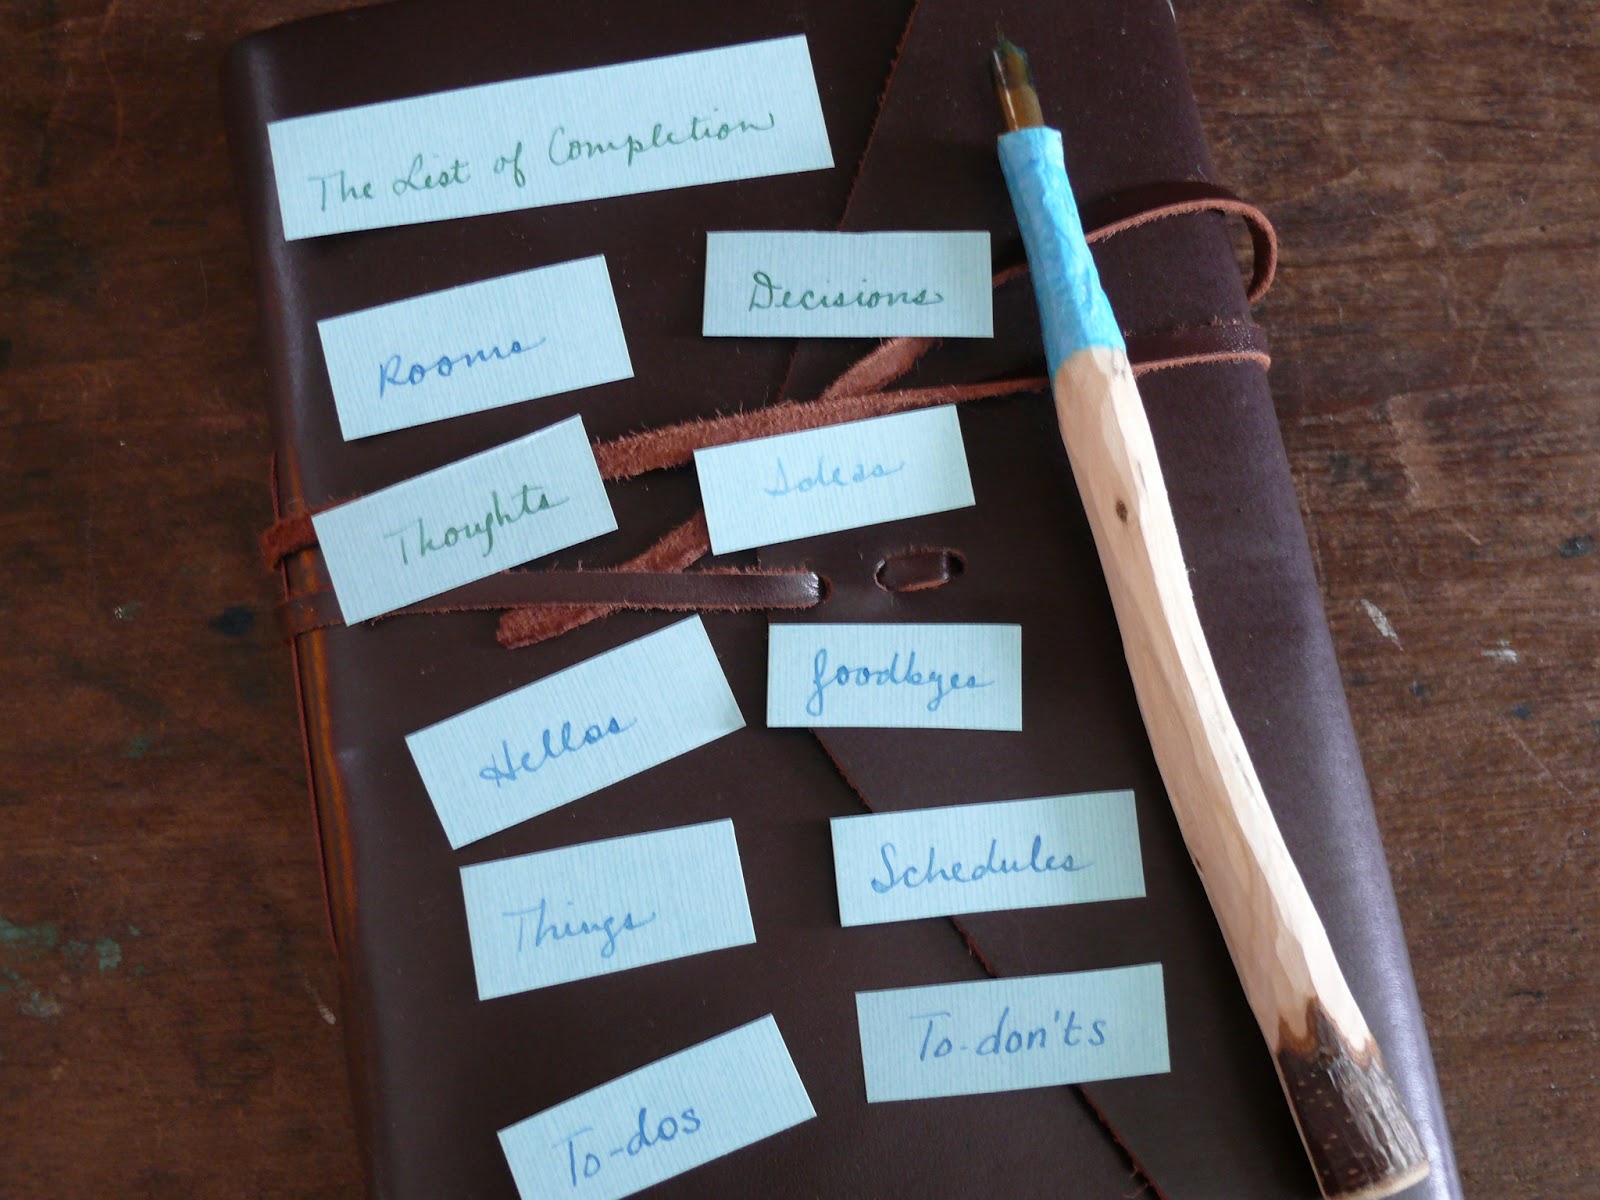 The List of Completion
Rooms
Decisions
Thoughts
Ideas
Hellos
Goodbyes
Things
Schedules
To-dos
To-don'ts